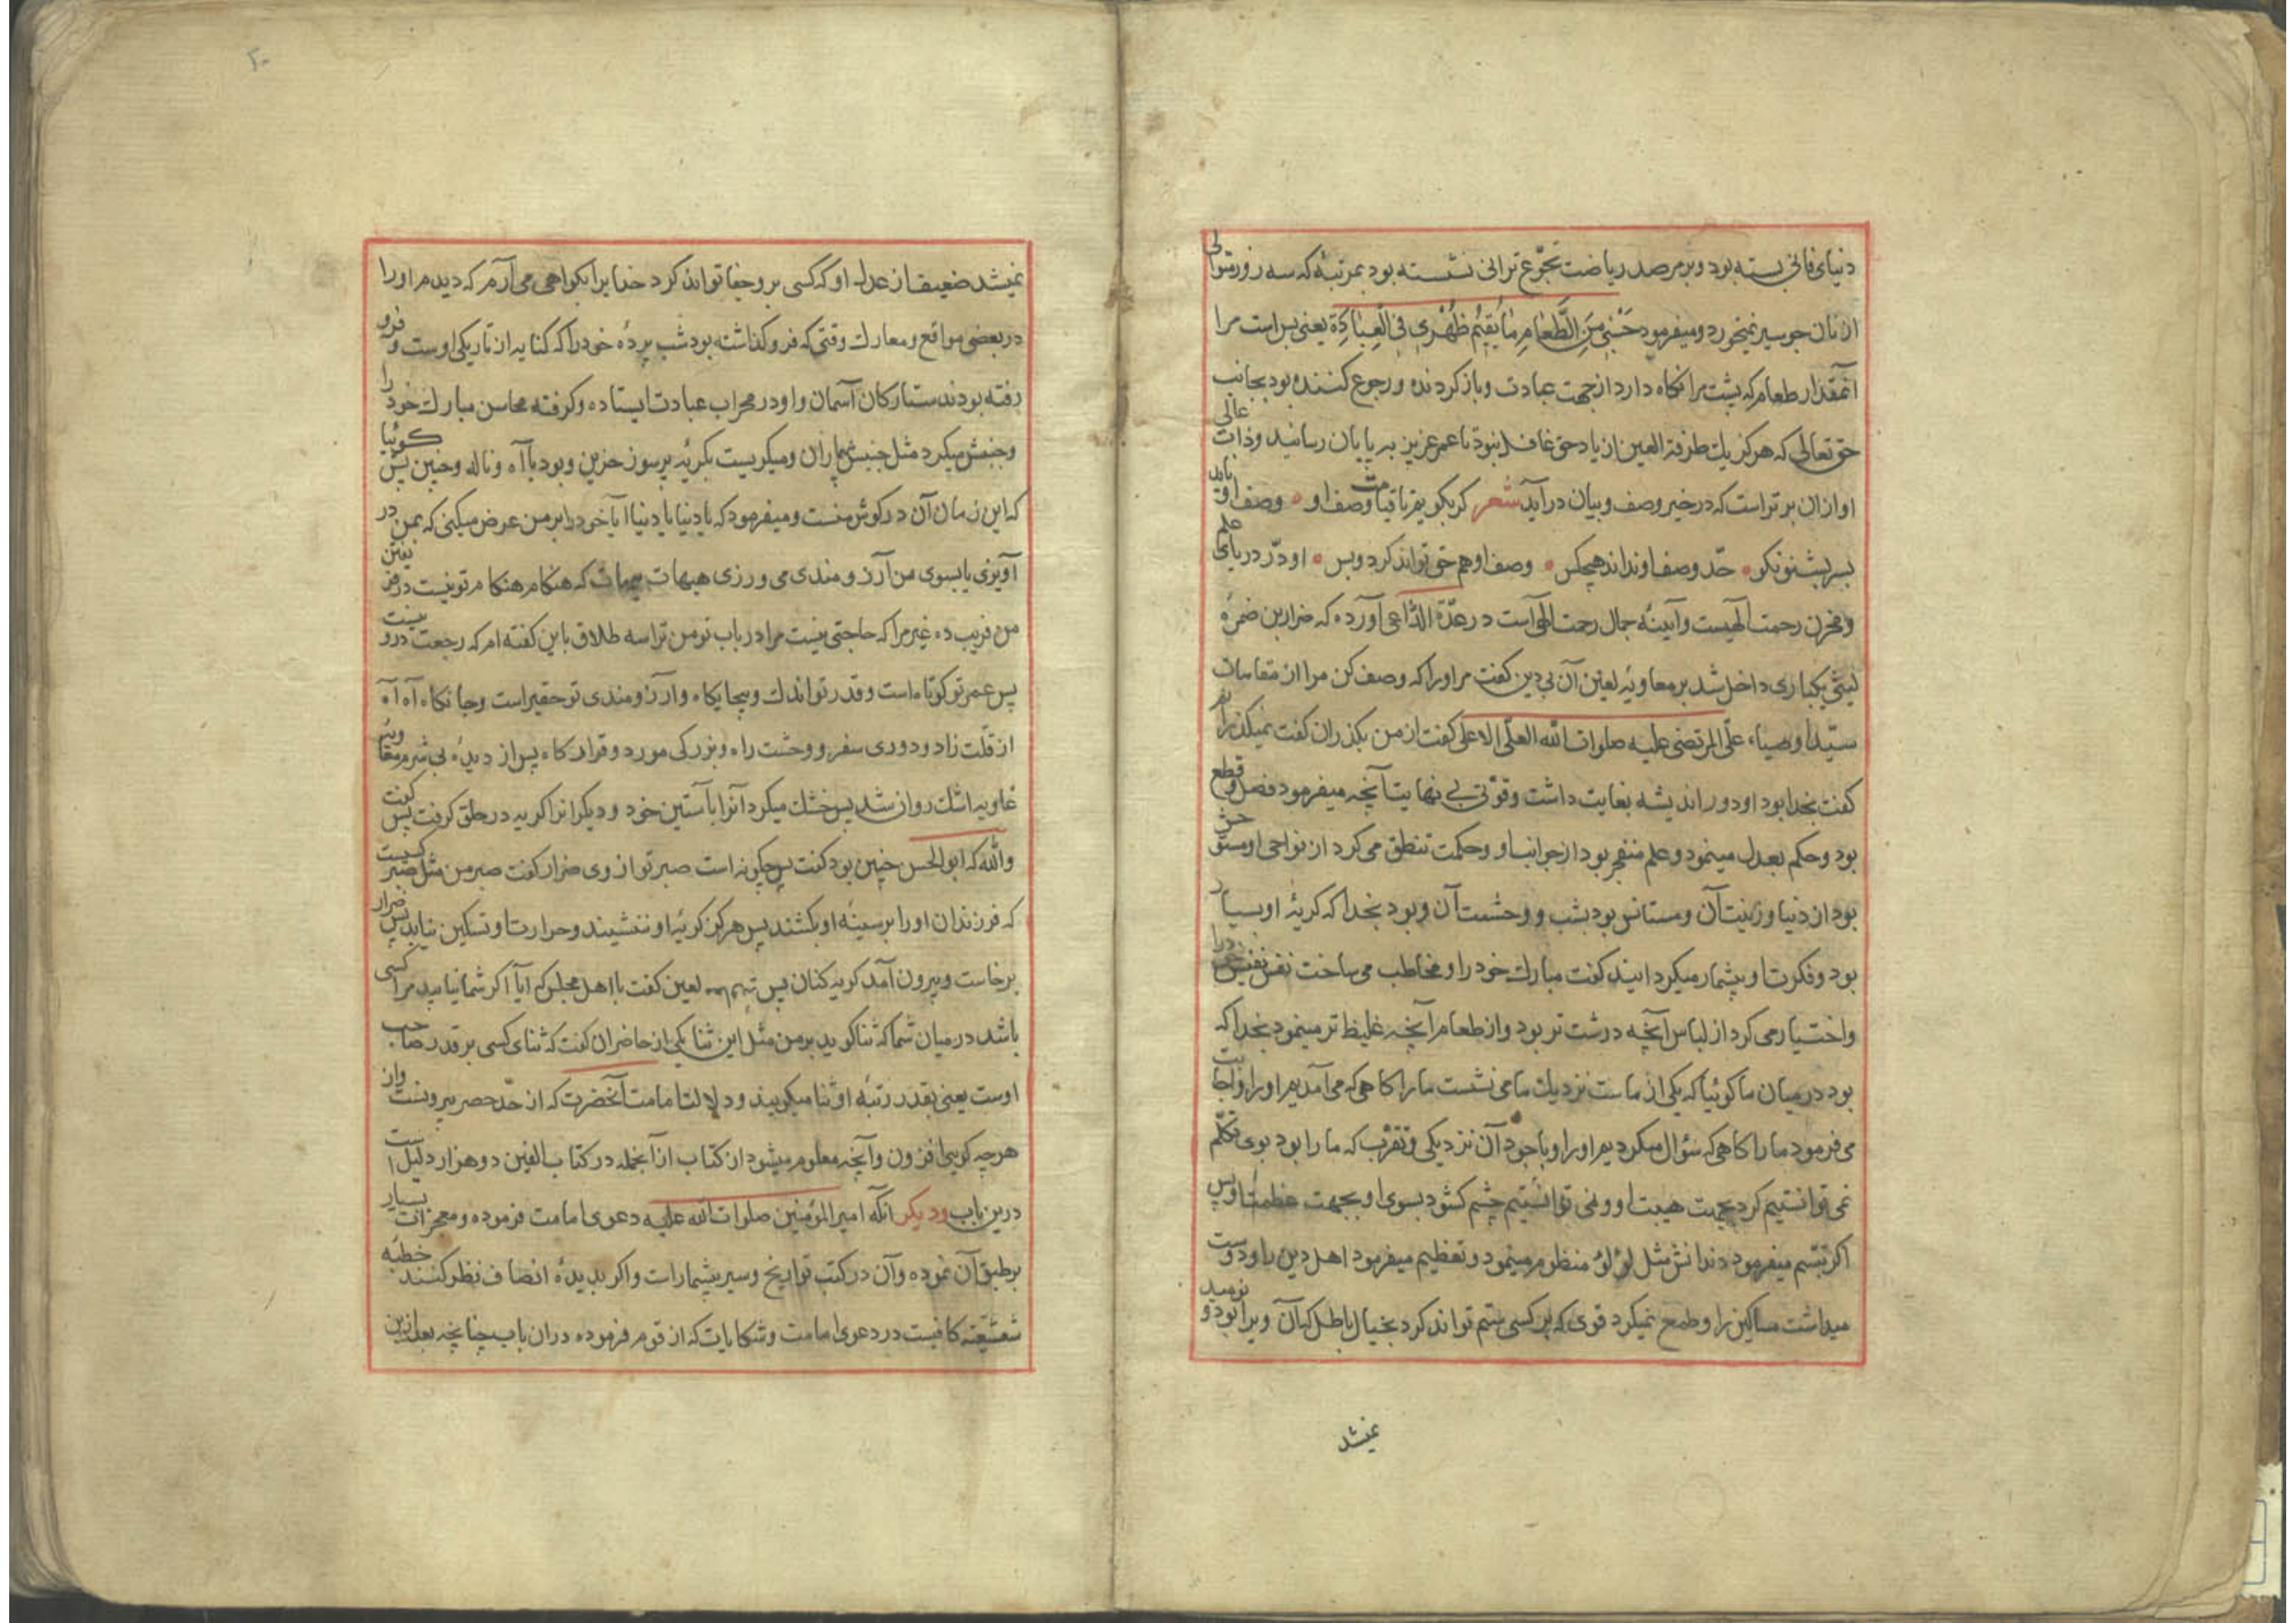 دنیای فانی بسته بود و بر مرصد ریاضت تجوّع ترانی نشسته بود بمرتبهٔ که سه روز متوالی
از نان جو سیر نمیخورد و میفرمود حَسْبی مِنَ الطَّعامِ ما یُقیمُ ظَهْری فی الْعِبادَةِ یعنی بس است مرا
آنمقدار طعام که پشت مرا نگاه دارد از جهت عبادت و باز کردنده و رجوع کننده بود بجانب
حق تعالی که هرگز یك طرفة العین از یاد حق غافل نبود تا عمر عزیز به پایان رسانید و ذات عالی
او ازان برتر است که در خیر وصف و بیان در آید شعر کر بکویم تا قیامت وصف او • وصف او باید
بسر بشنو نکو • حدّ وصف او نداند هیچکس • وصف او هم حق تواند کرد و بس • او درّ دریای علم
و مخزن رحمت آلهیست و آیینهٔ جمال رحمت الهی است در عدّة الدّاعی آورده که ضرار بن ضمرهٔ
لیثی یکباری داخل شد بر معاویه لعین آن بی دین کفت مر او را که وصف کن مرا از مقامات
سیّد اوصیاء علّی المرتضی علیه صلوات الله العلّی الاعلی کفت از من بکذران کفت نمیکذرانم
کفت بخدا بود او دور اندیشه بغایت داشت و قوّتی بے نهایت آنچه میفرمود فصل و قطع
بود و حکم بعدل مینمود و علم منفجر بود از جوانب او و حکمت تنطق می کرد از نواحی او مستوحش
بود از دنیا و زینت آن و مستانس بود بشب و وحشت آن و بود بخدا که کریهٔ او بسیار
بود و فکرت او بیشمار میکردانید کفت مبارك خود را و مخاطب می ساخت نفس نفیس خود را
و اختیار می کرد از لباس آنچه درشت تر بود و از طعام آنچه غلیظ تر مینمود بخدا که
بود در میان ما کوئیا که یکی از ماست نزدیك ما می نشست ما را کاهی که می آمدیم او را و اجابت
می فرمود ما را کاهی که سؤال میکردیم او را و با وجود آن نزدیکی و تقرب که ما را بود بوی تکلّم
نمی توانستیم کرد بجهت هیبت او و نمی توانستیم چشم کشود بسوی او بجهت عظمت او پس
اکر تبسّم میفرمود دندانش مثل لؤلؤ منظوم مینمود و تعظیم میفرمود اهل دین را و دوست
میداشت مساکین را و طمع نمیکرد قوی که بر کسی ستم تواند کرد بخیال باطل که آن ویرا بود و نومید
نمیشد
نمیشد ضعیف از عدل او که کسی بر و جفا تواند کرد خدا یرا بکواهی می آرم که دیدم او را
در بعضی مواقع و معارك وقتی که فرو کذاشته بود شب پردهٔ خود را که کنایه از تاریکی اوست و فرو
رفته بودند ستارکان آسمان و او در محراب عبادت ایستاده و کرفته محاسن مبارك خود را
و جنبش میکرد مثل جنبش بیماران و میکریست بکریهٔ پر سوز حزین و بود با آه و ناله و حنین پس کوئیا
که این زمان آن در کوش منست و میفرمود که یا دنیا یا دنیا آیا خود را بر من عرض میکنی که بمن در
آویزی یا بسوی من آرزومندی می ورزی هیهات هیهات که هنکام هنکام تو نیست در فریفتن
من فریب ده غیر مرا که حاجتی نیست مرا در باب تو من ترا سه طلاق باین کفته ام که رجعت درو نیست
پس عمر تو کوتاه است و قدر تو اندك و بیجایکاه و آرزومندی تو حقیر است و جانکاه آه آه
از قلّت زاد و دوری سفر و وحشت راه و بزرکی مورد و قرارکاه پس از دیدهٔ بی شرم
معاویه اشك روان شد پس خشك میکرد آنرا بآستین خود و دیکرانرا کریه در حلق کرفت پس کفت
والله که ابو الحسن چنین بود کفت پس چکونه است صبر تو از وی ضرار کفت صبر من مثل صبر کسیست
که فرزندان او را بر سینهٔ او بکشند پس هرکز کریهٔ او ننشیند و حرارت او تسکین نیابد پس ضرار
برخاست و بیرون آمد کریه کنان پس لعین کفت با اهل مجلس که آیا اکر شما نیابید مرا کسی
باشد در میان شما که ثنا کوید بر من مثل این ثنا یکی از حاضران کفت که ثنای کسی بر قدر صاحب
اوست یعنی بقدر رتبهٔ او ثنا میکویند و دلالت امامت آنحضرت که از حدّ حصر بیرونست و از
هر چه کویی افزون و آنچه معلوم میشود از کتاب از آنجمله در کتاب الفین دو هزار دلیل است
درین باب و دیکر آنکه امیر المؤمنین صلوات الله علیه دعوی امامت فرموده و معجزات بسیار
بر طبق آن نموده و آن در کتب تواریخ و سیر بیشمار است و اکر بدیدهٔ انصاف نظر کنند خطبه
شقشقیّه کافیست در دعوی امامت و شکایات که از قوم فرموده دران باب چنانچه بعد ازین